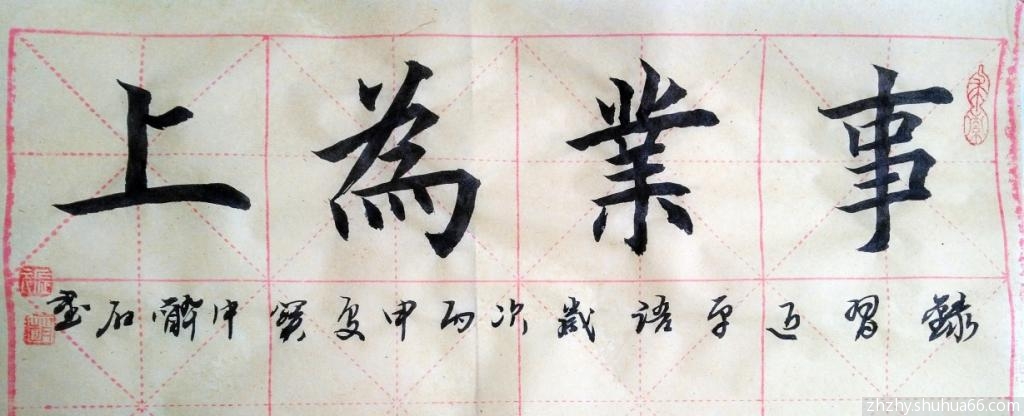 事業為上
錄習近平語歲次丙申夏寶中醉石書
zhzhy.shuhua66.com